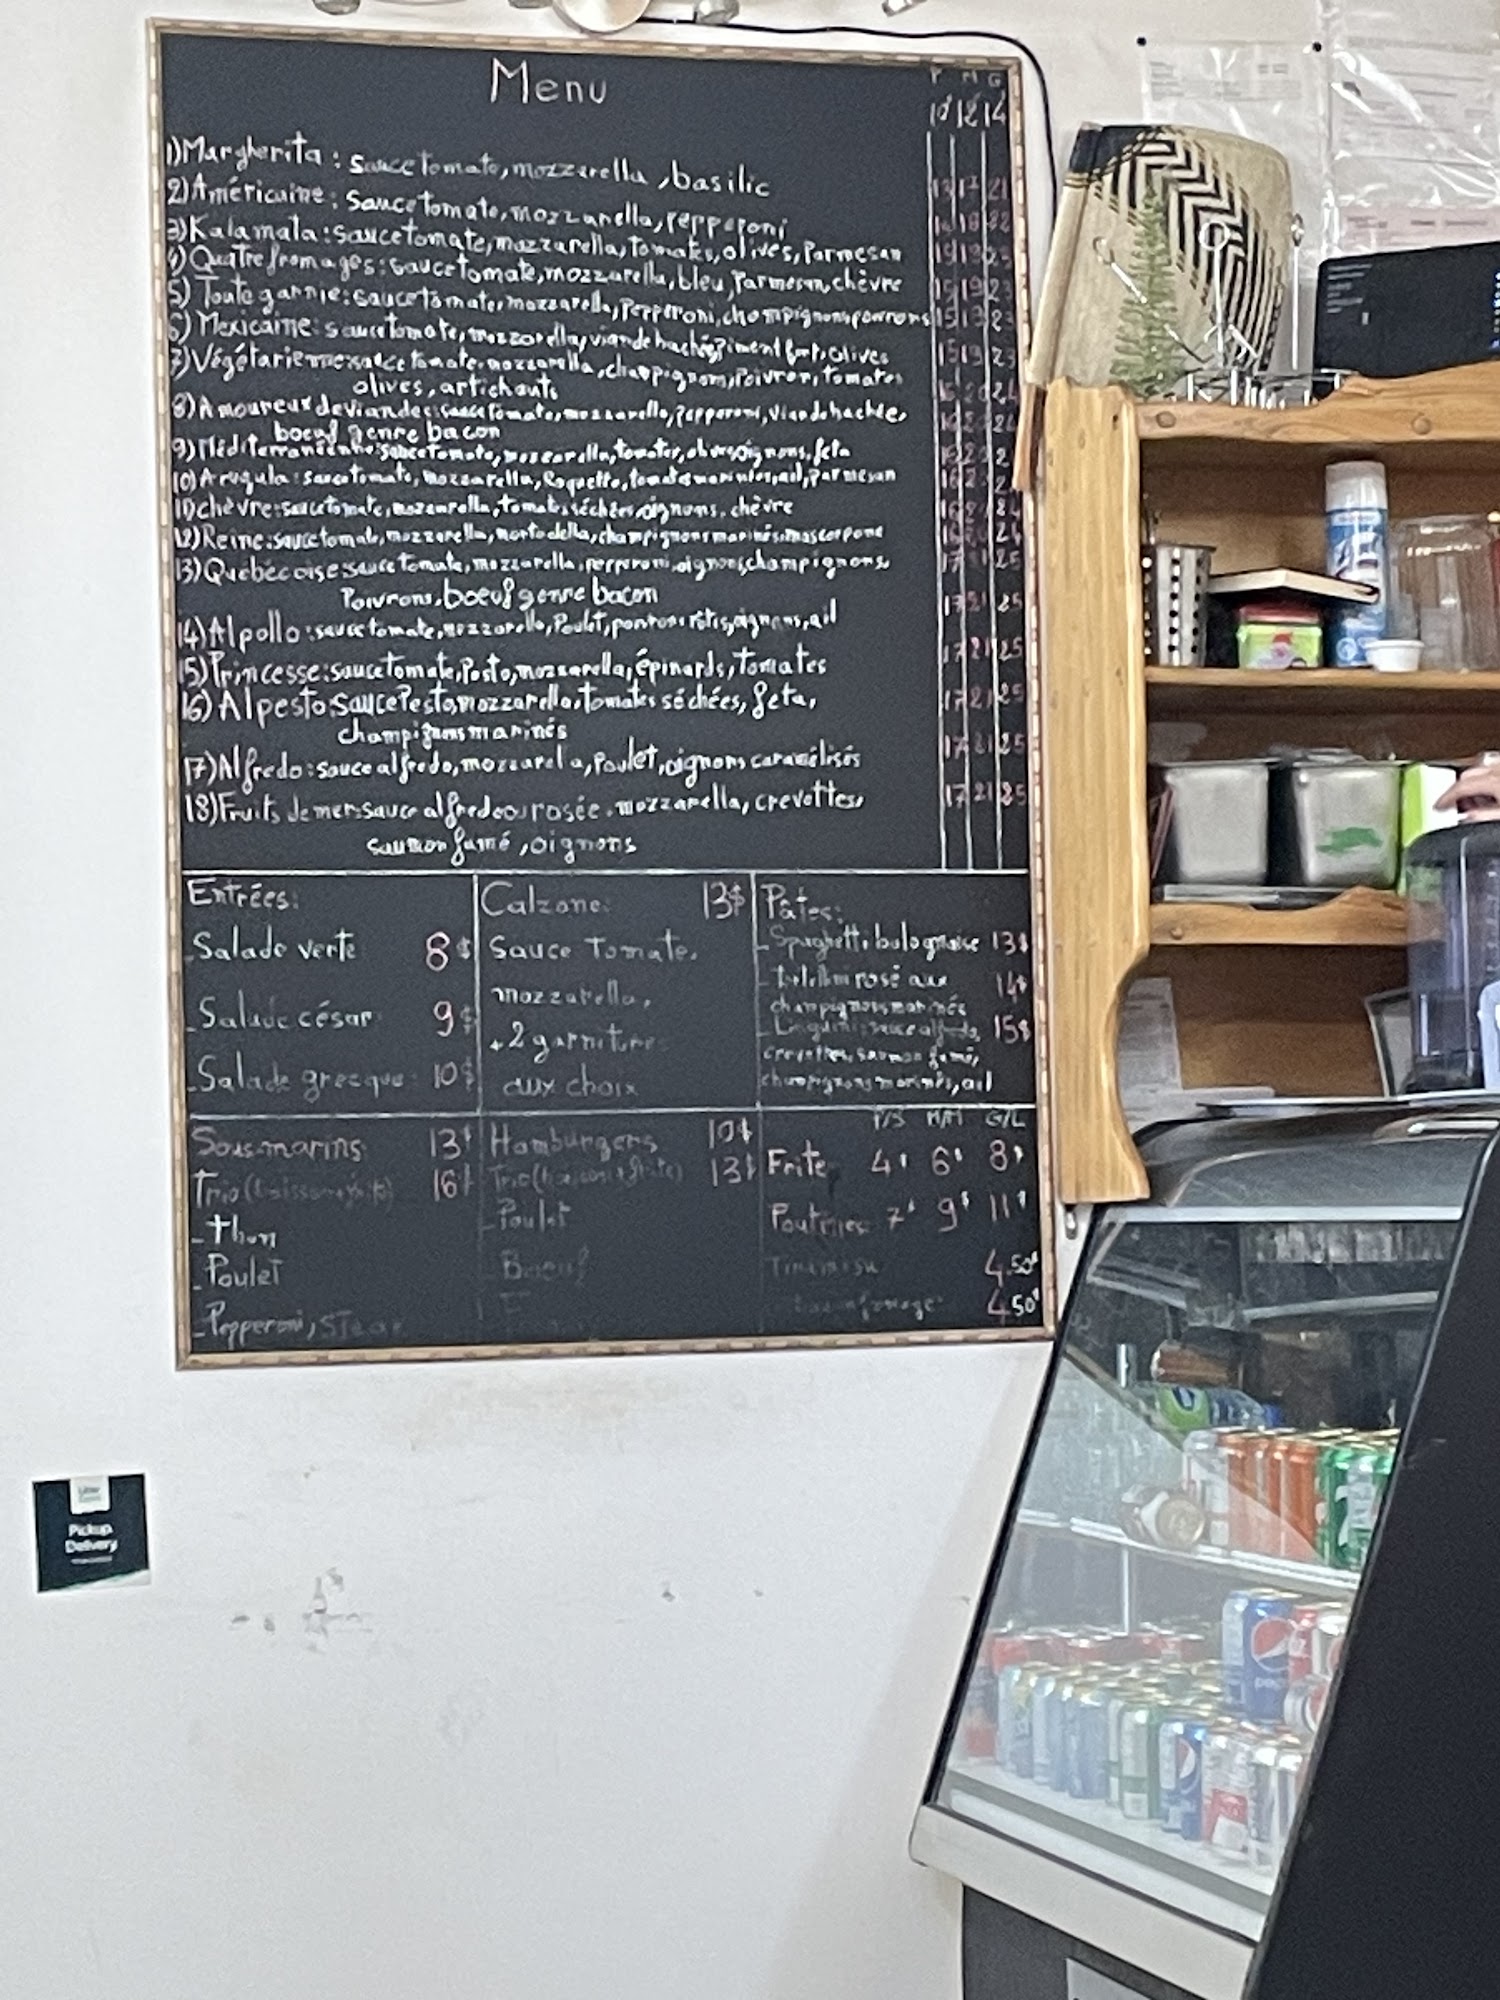 Menu
P M G
10 12 14
1) Margherita : sauce tomate, mozzarella, basilic
2) Américaine : sauce tomate, mozzarella, pepperoni 13 17 21
3) Kalamata : sauce tomate, mozzarella, tomates, olives, Parmesan
4) Quatre fromages : sauce tomate, mozzarella, bleu, Parmesan, chèvre
5) Toute garnie : sauce tomate, mozzarella, Pepperoni, champignons, poivrons
6) Mexicaine : sauce tomate, mozzarella, viande hachée, Piment fort, olives
7) Végétarienne : sauce tomate, mozzarella, champignons, Poivron, tomates
olives, artichauts
8) Amoureux de viandes : sauce tomate, mozzarella, Pepperoni, viande hachée,
boeuf genre bacon
9) Méditerranéenne : sauce tomate, mozzarella, tomates, olives, oignons, feta
10) Arugula : sauce tomate, mozzarella, Roquette, tomates marinées, ail, Parmesan
11) chèvre : sauce tomate, mozzarella, tomates séchées, oignons, chèvre
12) Reine : sauce tomate, mozzarella, mortadella, champignons marinés, mascarpone
13) Québécoise : sauce tomate, mozzarella, pepperoni, oignons, champignons, 17 25
Poivrons, boeuf genre bacon
14) Al pollo : sauce tomate, mozzarella, Poulet, poivrons rôtis, oignons, ail 17 21 25
15) Princesse : sauce tomate, Pesto, mozzarella, épinards, tomates 17 21 25
16) Al pesto : sauce Pesto, mozzarella, tomates séchées, feta, 17 21 25
champignons marinés
17) Alfredo : sauce alfredo, mozzarella, Poulet, oignons caramélisés 17 21 25
18) Fruits de mer : sauce alfredo ou rosée, mozzarella, crevettes, 17 21 25
saumon fumé, oignons
Entrées:
- Salade verte 8$
- Salade césar 9$
- Salade grecque 10$
Calzone: 13$
Sauce Tomate,
mozzarella,
+ 2 garnitures
aux choix
Pâtes:
- Spaghetti bolognaise 13$
- tortellini rosé aux 14$
champignons marinés
- Linguini : sauce alfredo, 15$
crevettes, saumon fumé,
champignons marinés, ail
Sous-marins 13$
Trio (boisson+frite) 16$
- thon
- Poulet
- Pepperoni, Steak
Hamburgers 10$
Trio (boisson+frite) 13$
- Poulet
- Boeuf
P/S M/M G/L
Frite 4$ 6$ 8$
Poutines 7$ 9$ 11$
Tiramisu 4.50$
fromage 4.50$
Pickup
Delivery